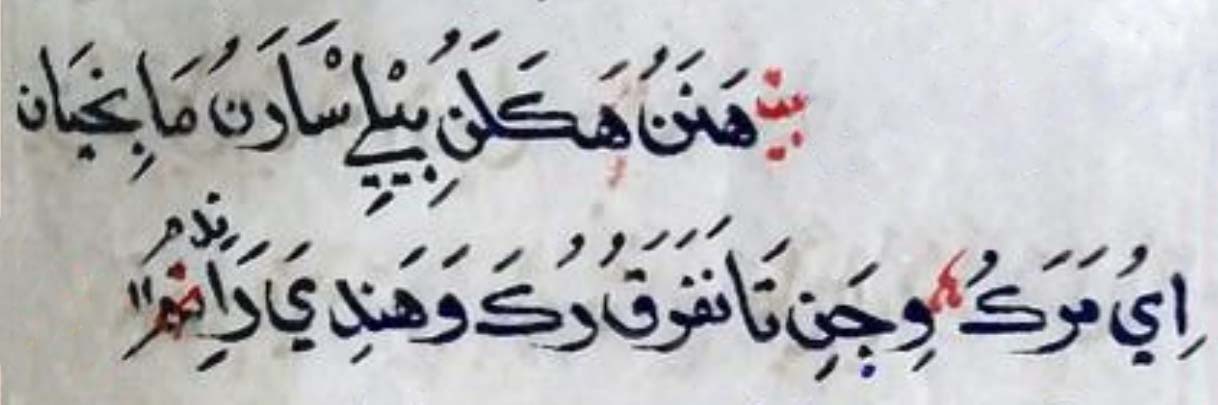 بيت هَنَنُ هَكَلَنِ بِيْلِي سْارَنُ مَا بِخِيَان
اِيُ مَرَكُ وِچَنِ تَا نَفَرَقُ رُكَ وَهَنِدِي يَ رَا